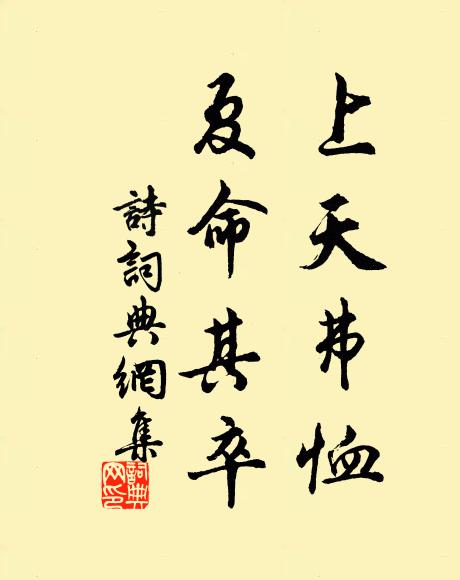 上天弗恤
夏命其卒
詩詞典網集
詞典网印